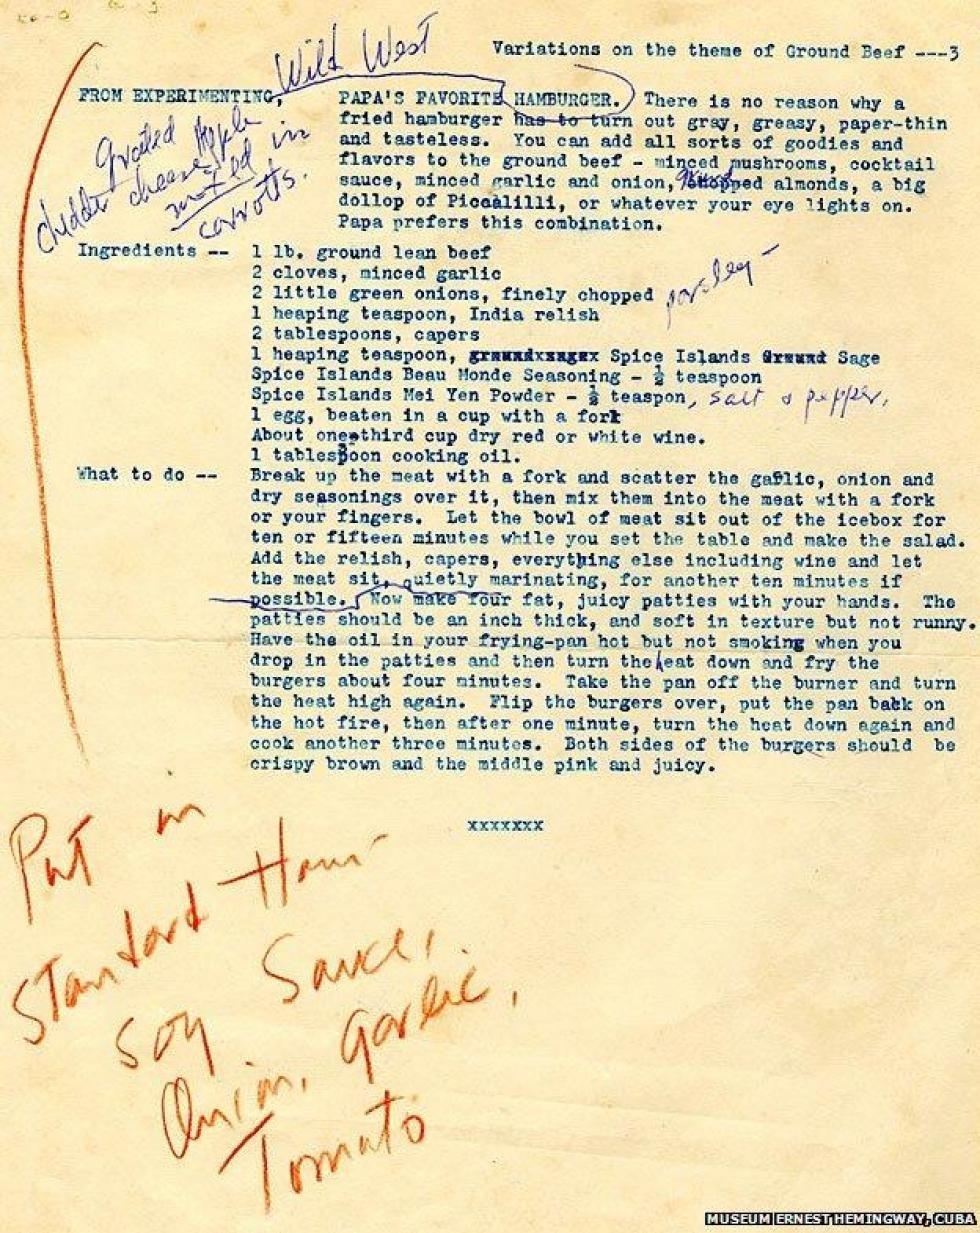 Wild West
Variations on the theme of Ground Beef ---3
FROM EXPERIMENTING, PAPA'S FAVORITE HAMBURGER. There is no reason why a
fried hamburger has to turn out gray, greasy, paper-thin
and tasteless. You can add all sorts of goodies and
flavors to the ground beef - minced mushrooms, cocktail
sauce, minced garlic and onion, chopped almonds, a big
dollop of Piccalilli, or whatever your eye lights on.
Papa prefers this combination.
grated Apple
chedder cheese
in
carrotts.
Ingredients -- 1 lb. ground lean beef
2 cloves, minced garlic
2 little green onions, finely chopped parsley
1 heaping teaspoon, India relish
2 tablespoons, capers
1 heaping teaspoon, Spice Islands Sage
Spice Islands Beau Monde Seasoning - ½ teaspoon
Spice Islands Mei Yen Powder - ½ teaspon, salt & pepper,
1 egg, beaten in a cup with a fork
About one-third cup dry red or white wine.
1 tablespoon cooking oil.
What to do -- Break up the meat with a fork and scatter the garlic, onion and
dry seasonings over it, then mix them into the meat with a fork
or your fingers. Let the bowl of meat sit out of the icebox for
ten or fifteen minutes while you set the table and make the salad.
Add the relish, capers, everything else including wine and let
the meat sit, quietly marinating, for another ten minutes if
possible. Now make four fat, juicy patties with your hands. The
patties should be an inch thick, and soft in texture but not runny.
Have the oil in your frying-pan hot but not smoking when you
drop in the patties and then turn the heat down and fry the
burgers about four minutes. Take the pan off the burner and turn
the heat high again. Flip the burgers over, put the pan back on
the hot fire, then after one minute, turn the heat down again and
cook another three minutes. Both sides of the burgers should be
crispy brown and the middle pink and juicy.
xxxxxxx
Put in
Standard Ham
Soy Sauce,
Onion, Garlic,
Tomato
MUSEUM ERNEST HEMINGWAY, CUBA